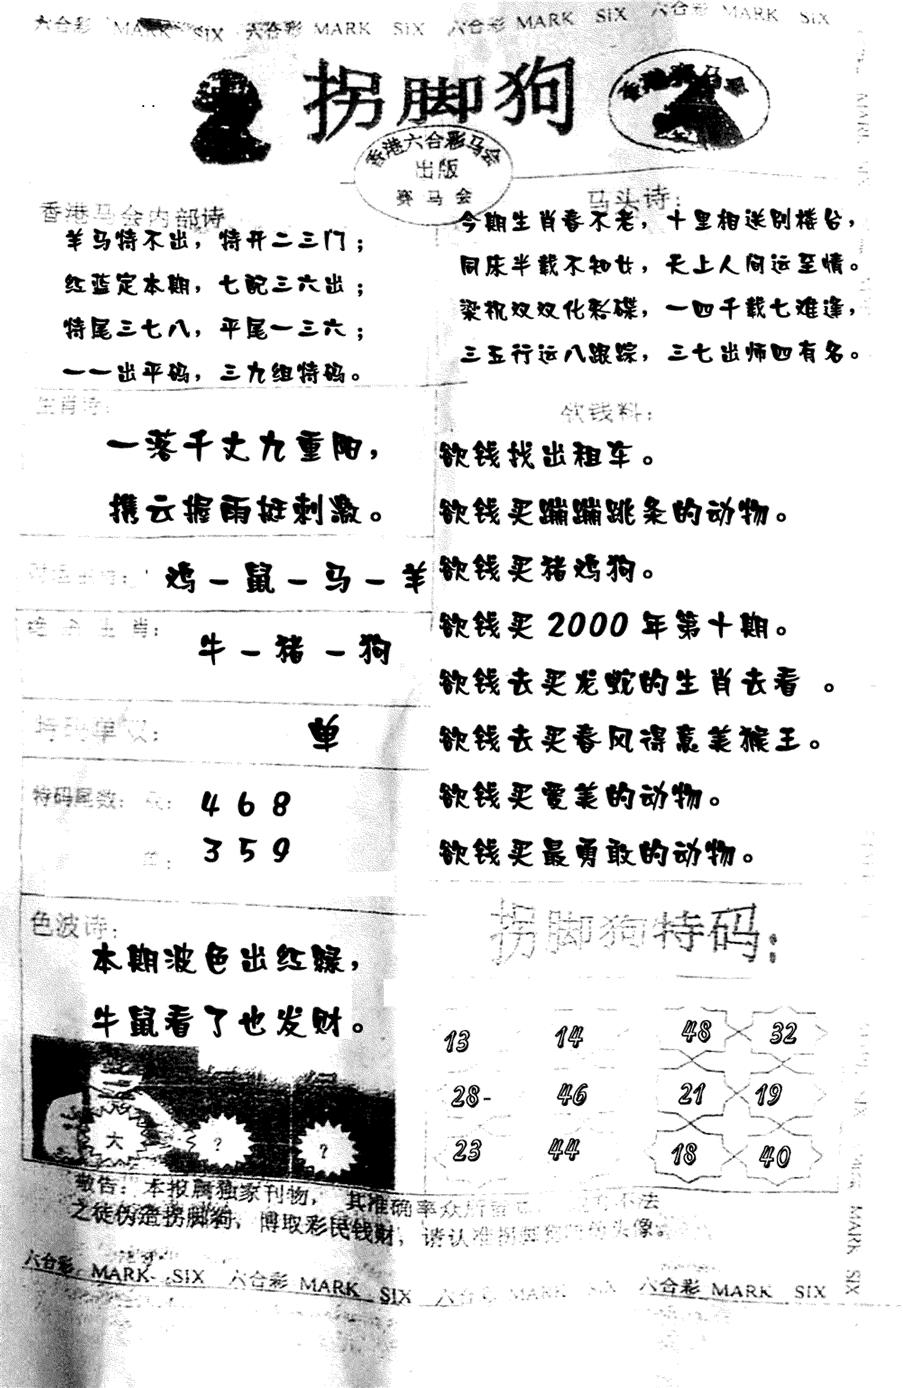 六合彩 MARK SIX 六合彩 MARK SIX 六合彩 MARK SIX 六合彩 MARK SIX
拐脚狗
香港赛马会
香港六合彩马会
出版
赛马会
香港马会内部诗
羊马特不出，特开二三门；
红蓝定本期，七配三六出；
特尾三七八，平尾一三六；
一一出平码，三九组特码。
马头诗：
今期生肖春不老，十里相送别楼台，
同床半载不知女，天上人间运至情。
梁祝双双化彩碟，一四千载七难逢，
三五行运八跟踪，三七出师四有名。
生肖诗：
一落千丈九重阳，
携云握雨挺刺激。
鸡－鼠－马－羊
生肖：
牛－猪－狗
特码单双：
单
特码尾数：
4 6 8
3 5 9
欲钱料：
欲钱找出租车。
欲钱买蹦蹦跳条的动物。
欲钱买猪鸡狗。
欲钱买 2000 年第十期。
欲钱去买龙蛇的生肖去看 。
欲钱去买春风得意美猴王。
欲钱买爱美的动物。
欲钱买最勇敢的动物。
色波诗：
本期波色出红绿，
牛鼠看了也发财。
大 ? ?
拐脚狗特码：
13 14 48 32
28- 46 21 19
23 44 18 40
敬告：本报属独家刊物，其准确率众所 不法
之徒伪造拐脚狗，博取彩民钱财，请认准拐脚狗 头像。
六合彩 MARK SIX 六合彩 MARK SIX 六合彩 MARK SIX 六合彩 MARK SIX
MARK SIX